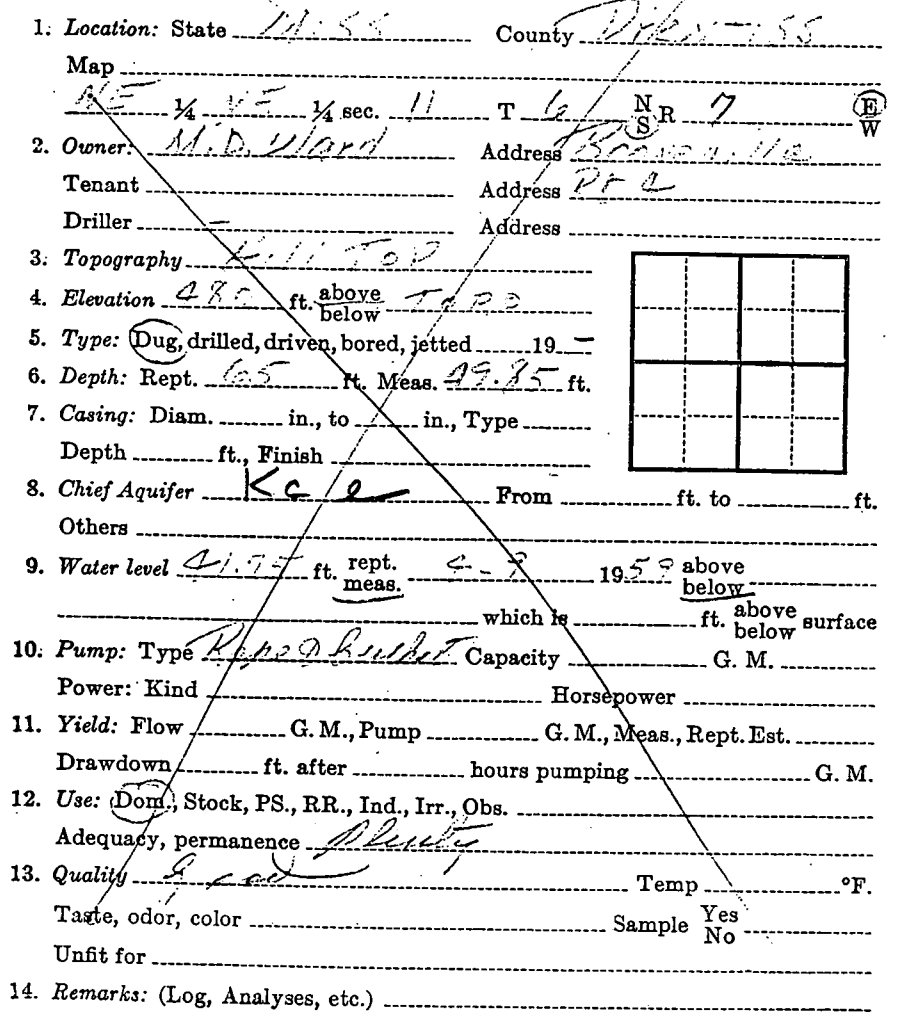 1. Location: State Miss County Prentiss
Map
NE 1/4 NE 1/4 sec. 11 T 6 N S R 7 E W
2. Owner: M.D. Ward Address Booneville
Tenant Address Rt 2
Driller — Address
3. Topography Hill Top
4. Elevation 480 ft. above below Topo
5. Type: Dug, drilled, driven, bored, jetted 19 —
6. Depth: Rept. 65 ft. Meas. 49.85 ft.
7. Casing: Diam. in., to in., Type
Depth ft., Finish
8. Chief Aquifer Kce From ft. to ft.
Others
9. Water level 41.75 ft. rept. meas. 4-9 1959 above below
which is ft. above below surface
10. Pump: Type Rope & bucket Capacity G. M.
Power: Kind Horsepower
11. Yield: Flow G. M., Pump G. M., Meas., Rept. Est.
Drawdown ft. after hours pumping G. M.
12. Use: Dom., Stock, PS., RR., Ind., Irr., Obs.
Adequacy, permanence Plenty
13. Quality Good Temp °F.
Taste, odor, color Sample Yes No
Unfit for
14. Remarks: (Log, Analyses, etc.)